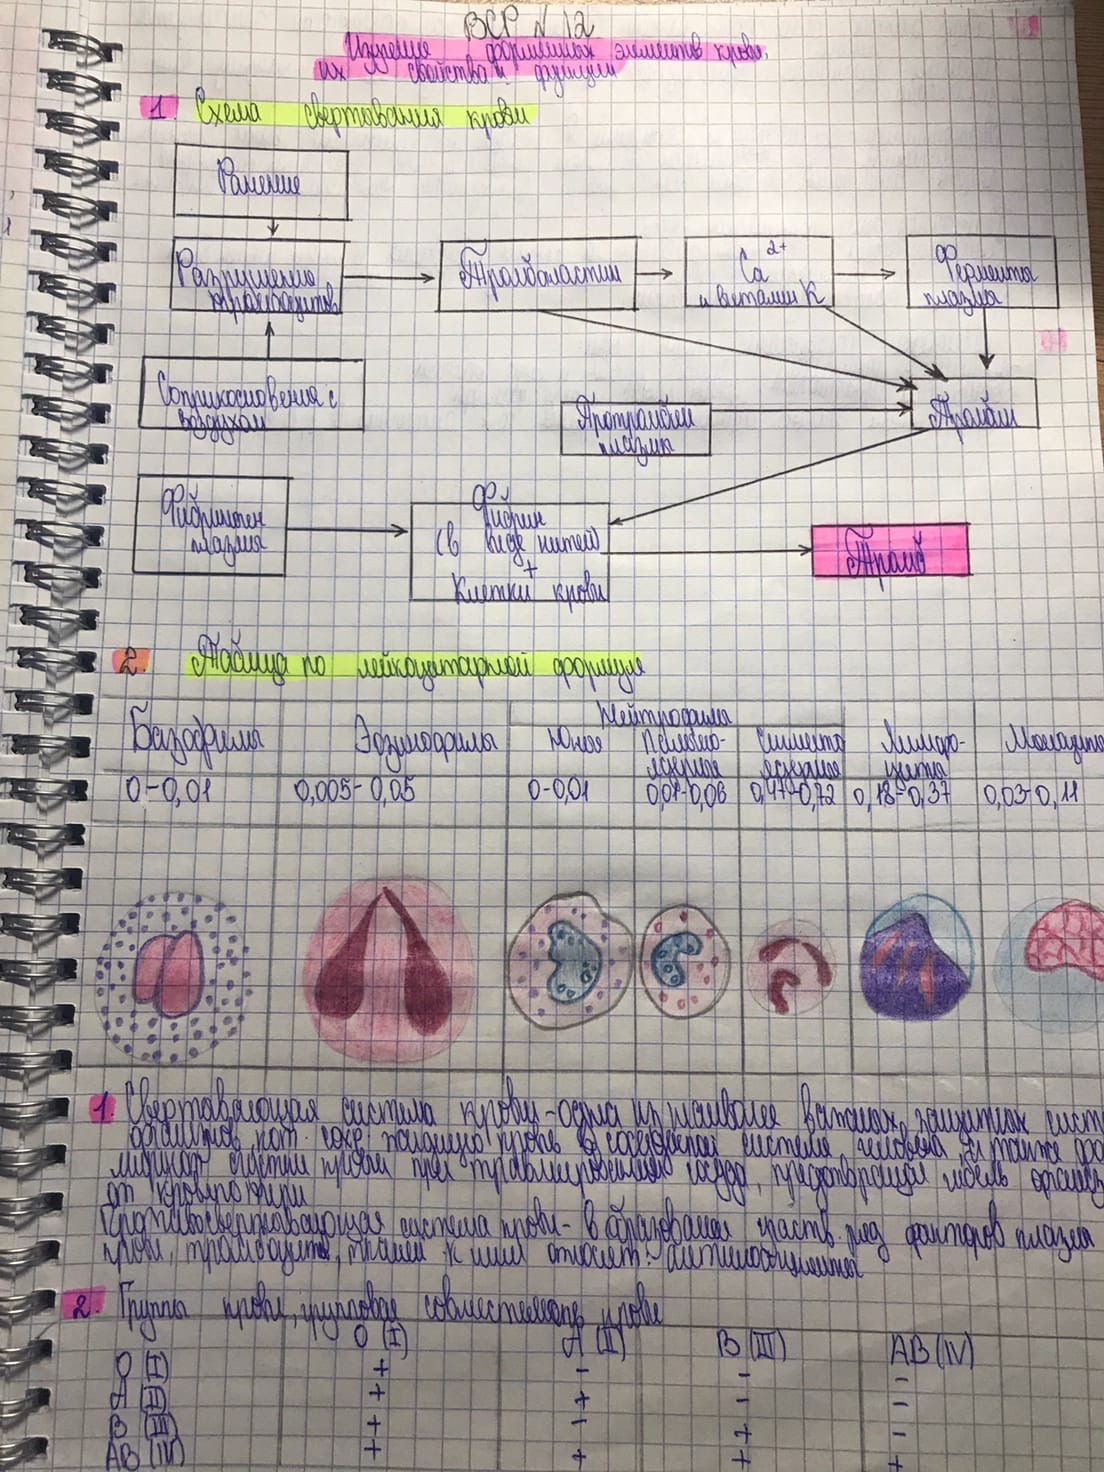 ВСР N 12
Изучение форменных элементов крови,
их свойства и функции
1 Схема свертования крови
Ранение
Разрушение
тромбоцитов
Тромбопластин
Ca 2+
и витамин К
Ферменты
плазмы
Соприкосновения с
воздухом
Протромбин
плазмы
Тромбин
Фибриноген
плазмы
Фибрин
(в виде нитей)
+
Клетки крови
Тромб
2. Таблица по лейкоцитарной формуле
Нейтрофилы
Базофилы Эозинофилы Юные Палочко-
ядерные Сегменто
ядерные Лимфо-
циты Моноциты
0-0,01 0,005-0,05 0-0,01 0,01-0,06 0,47-0,72 0,18-0,37 0,03-0,11
1. Свертовающая система крови - одна из наиболее важных, защитных сист
организмов, кот. сохр. жидкую кровь в сосудистой системе человека, а также
крови при травмировании сосуда, гибель организ
от кровопотери
Противосвертовающая система крови - в образовании участв. ряд факторов плазмы
крови, тромбоциты, ткани к ним относят.
2. Группы крови, групповая совместимость крови
O (I) A (II) B (III) AB (IV)
O (I) + - - -
A (II) + + - -
B (III) + - + -
AB (IV) + + + +